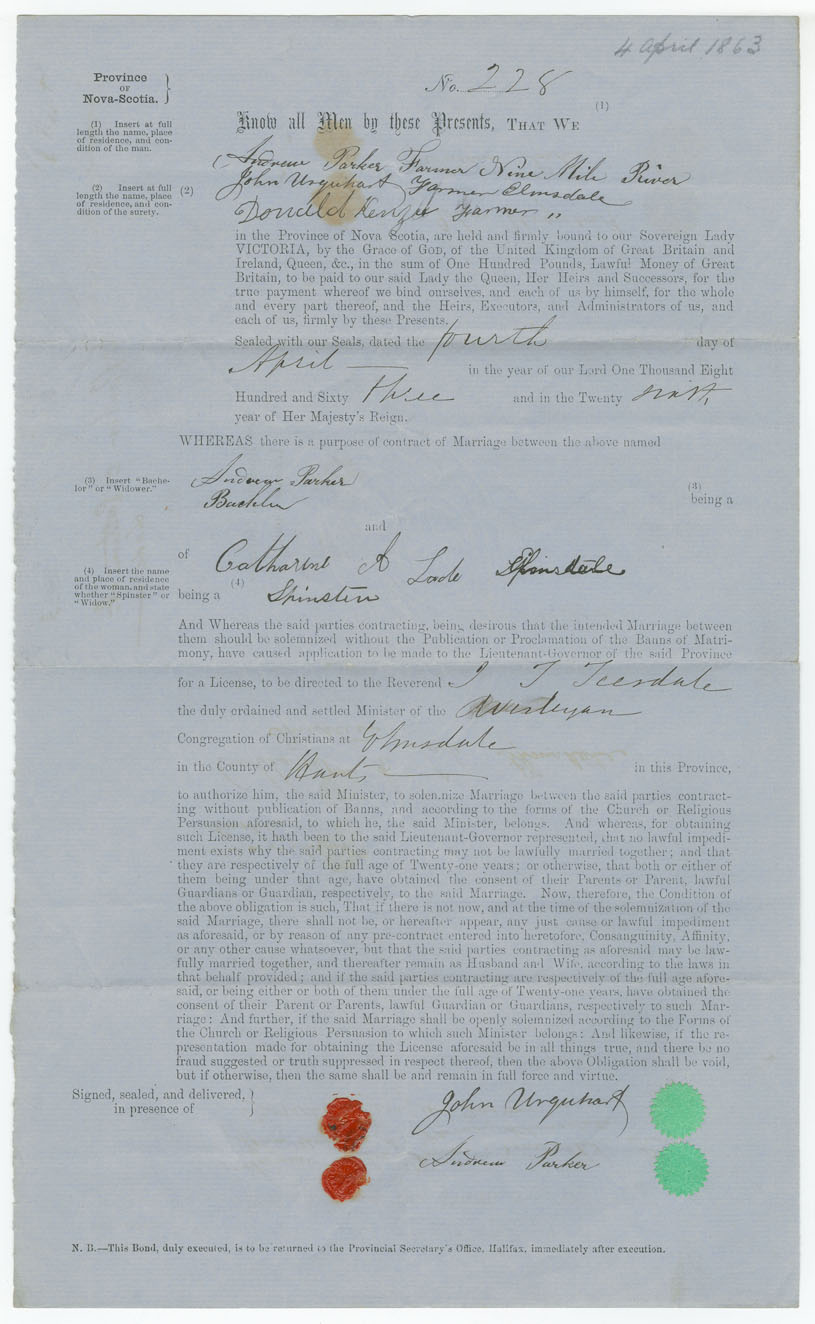 4 April 1863
Province
OF
Nova-Scotia.
No. 228
(1) Insert at full
length the name, place
of residence, and con-
dition of the man.
Know all Men by these Presents, THAT WE (1)
Andrew Parker Farmer Nine Mile River
(2) Insert at full
length the name, place
of residence, and con-
dition of the surety.
(2) John Urquhart Farmer Elmsdale
Donald Kenzie Farmer "
in the Province of Nova Scotia, are held and firmly bound to our Sovereign Lady
VICTORIA, by the Grace of GOD, of the United Kingdom of Great Britain and
Ireland, Queen, &c., in the sum of One Hundred Pounds, Lawful Money of Great
Britain, to be paid to our said Lady the Queen, Her Heirs and Successors, for the
true payment whereof we bind ourselves, and each of us by himself, for the whole
and every part thereof, and the Heirs, Executors, and Administrators of us, and
each of us, firmly by these Presents.
Sealed with our Seals, dated the fourth day of
April in the year of our Lord One Thousand Eight
Hundred and Sixty three and in the Twenty sixth
year of Her Majesty's Reign.
WHEREAS there is a purpose of contract of Marriage between the above named
(3) Insert "Bache-
lor" or "Widower."
Andrew Parker
(3)
Bachelor being a
and
(4) Insert the name
and place of residence
of the woman, and state
whether "Spinster" or
"Widow."
of Catharine A Lade Elmsdale
being a (4) Spinster
And Whereas the said parties contracting, being desirous that the intended Marriage between
them should be solemnized without the Publication or Proclamation of the Banns of Matri-
mony, have caused application to be made to the Lieutenant-Governor of the said Province
for a License, to be directed to the Reverend J T Teesdale
the duly ordained and settled Minister of the Wesleyan
Congregation of Christians at Elmsdale
in the County of Hants in this Province,
to authorize him, the said Minister, to solemnize Marriage between the said parties contract-
ing without publication of Banns, and according to the forms of the Church or Religious
Persuasion aforesaid, to which he, the said Minister, belongs. And whereas, for obtaining
such License, it hath been to the said Lieutenant-Governor represented, that no lawful impedi-
ment exists why the said parties contracting may not be lawfully married together; and that
they are respectively of the full age of Twenty-one years; or otherwise, that both or either of
them being under that age, have obtained the consent of their Parents or Parent, lawful
Guardians or Guardian, respectively, to the said Marriage. Now, therefore, the Condition of
the above obligation is such, That if there is not now, and at the time of the solemnization of the
said Marriage, there shall not be, or hereafter appear, any just cause or lawful impediment
as aforesaid, or by reason of any pre-contract entered into heretofore, Consanguinity, Affinity,
or any other cause whatsoever, but that the said parties contracting as aforesaid may be law-
fully married together, and thereafter remain as Husband and Wife, according to the laws in
that behalf provided; and if the said parties contracting are respectively of the full age afore-
said, or being either or both of them under the full age of Twenty-one years, have obtained the
consent of their Parent or Parents, lawful Guardian or Guardians, respectively to such Mar-
riage: And further, if the said Marriage shall be openly solemnized according to the Forms of
the Church or Religious Persuasion to which such Minister belongs: And likewise, if the re-
presentation made for obtaining the License aforesaid be in all things true, and there be no
fraud suggested or truth suppressed in respect thereof, then the above Obligation shall be void,
but if otherwise, then the same shall be and remain in full force and virtue.
Signed, sealed, and delivered,
in presence of
John Urquhart
Andrew Parker
N. B.—This Bond, duly executed, is to be returned to the Provincial Secretary's Office, Halifax, immediately after execution.